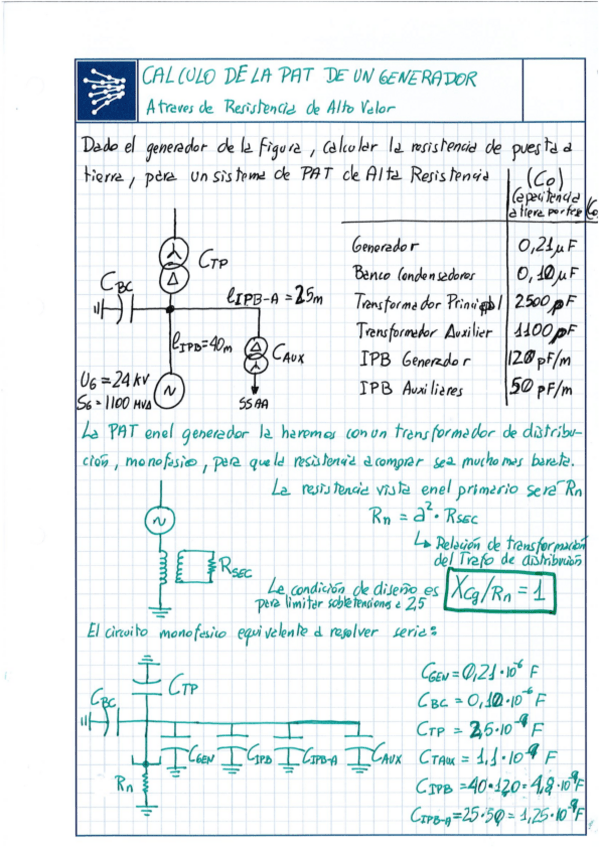 CALCULO DE LA PAT DE UN GENERADOR
Atraves de Resistencia de Alto Valor
Dado el generador de la Figura, calcular la resistencia de puesta a
tierra, para un sistema de PAT de Alta Resistencia
(Co)
Capacitancia
a tierra por fase (Co
Generador 0,21 μF
Banco Condensadores 0,10 μF
Transformador Principal 2500 pF
Transformador Auxiliar 1100 pF
IPB Generador 120 pF/m
IPB Auxiliares 50 pF/m
CTP
CBC
ℓIPB-A = 25m
ℓIPB=40m
CAUX
UG = 24 kV
SG = 1100 MVA
N
SSAA
La PAT en el generador la haremos con un transformador de distribu-
ción, monofasico, para que la resistencia a comprar sea mucho mas barata.
La resistencia vista en el primario será Rn
Rn = a²·RSEC
↳ Relación de transformación
del Trafo de distribución
N
RSEC
La condición de diseño es
para limitar sobretensiones a 2,5
XCg/Rn = 1
El circuito monofasico equivalente a resolver seria:
CTP
CBC
CGEN
CIPB
CIPB-A
CAUX
Rn
CGEN = 0,21·10⁻⁶ F
CBC = 0,10·10⁻⁶ F
CTP = 2,5·10⁻⁹ F
CTAUX = 1,1·10⁻⁹ F
CIPB = 40·120 = 4,8·10⁻⁹ F
CIPB-A = 25·50 = 1,25·10⁻⁹ F